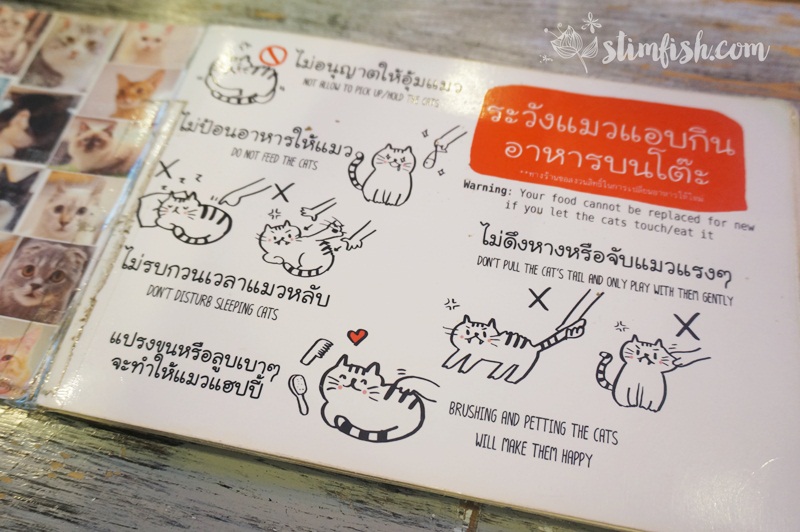 stimfish.com
ไม่อนุญาตให้อุ้มแมว
NOT ALLOW TO PICK UP/HOLD THE CATS
ไม่ป้อนอาหารให้แมว
DO NOT FEED THE CATS
z z z z
ไม่รบกวนเวลาแมวหลับ
DON'T DISTURB SLEEPING CATS
แปรงขนหรือลูบเบาๆ
จะทำให้แมวแฮปปี้
ระวังแมวแอบกิน
อาหารบนโต๊ะ
**ทางร้านขอสงวนสิทธิ์ในการเปลี่ยนอาหารให้ใหม่
Warning: Your food cannot be replaced for new
if you let the cats touch/eat it
ไม่ดึงหางหรือจับแมวแรงๆ
DON'T PULL THE CAT'S TAIL AND ONLY PLAY WITH THEM GENTLY
BRUSHING AND PETTING THE CATS
WILL MAKE THEM HAPPY